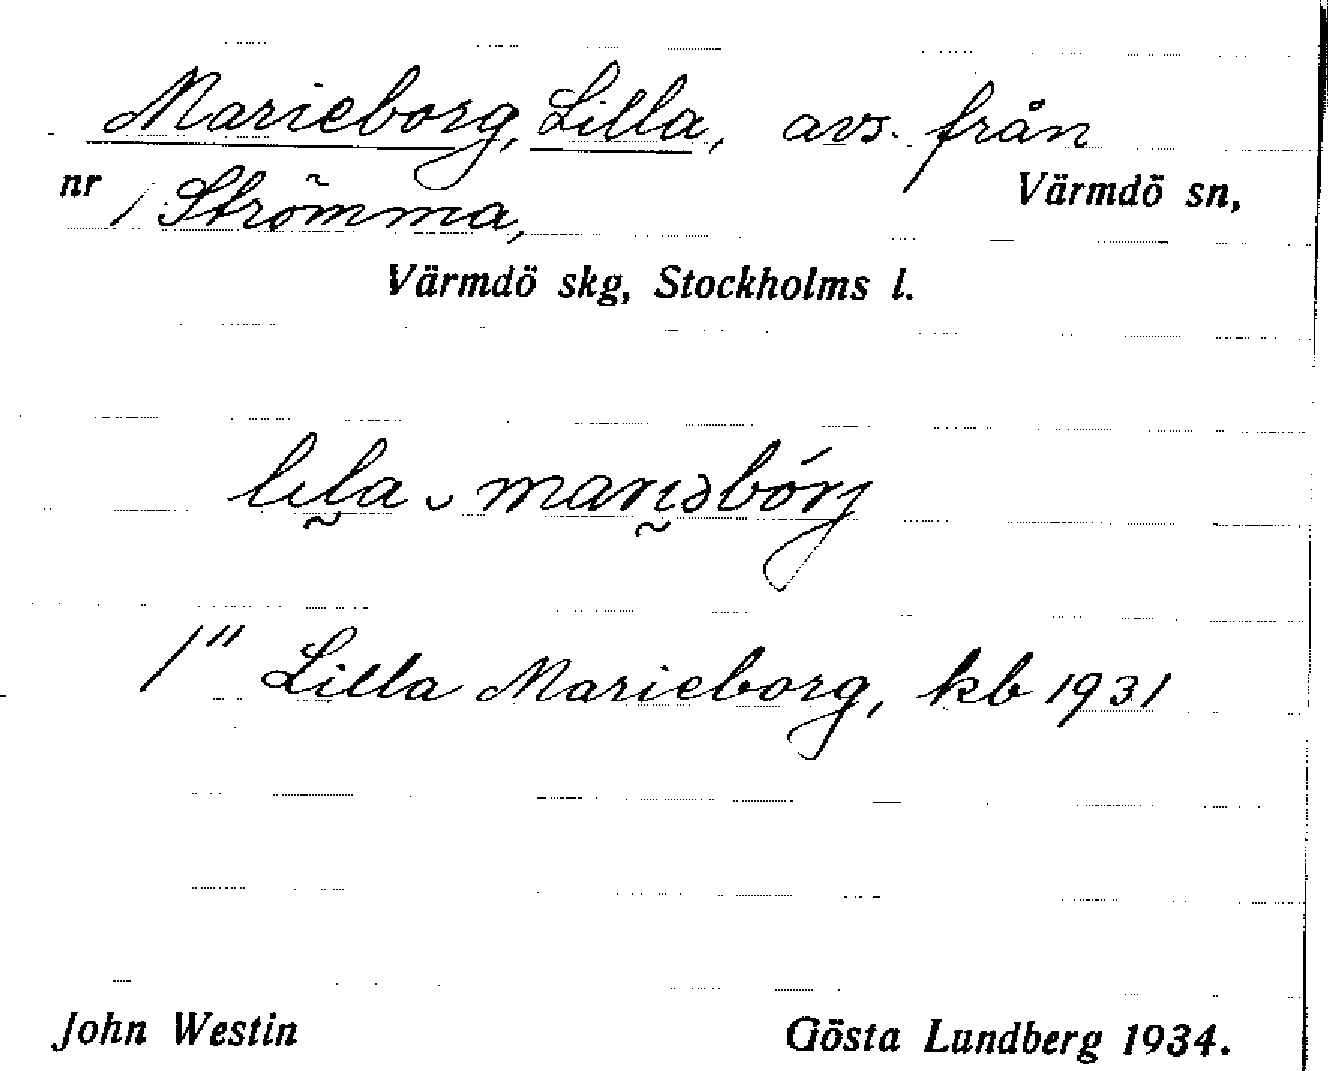 Marieborg, Lilla, avs. från
nr 1 Strömma, Värmdö sn,
Värmdö skg, Stockholms l.
1" Lilla Marieborg, kb 1931
John Westin Gösta Lundberg 1934.